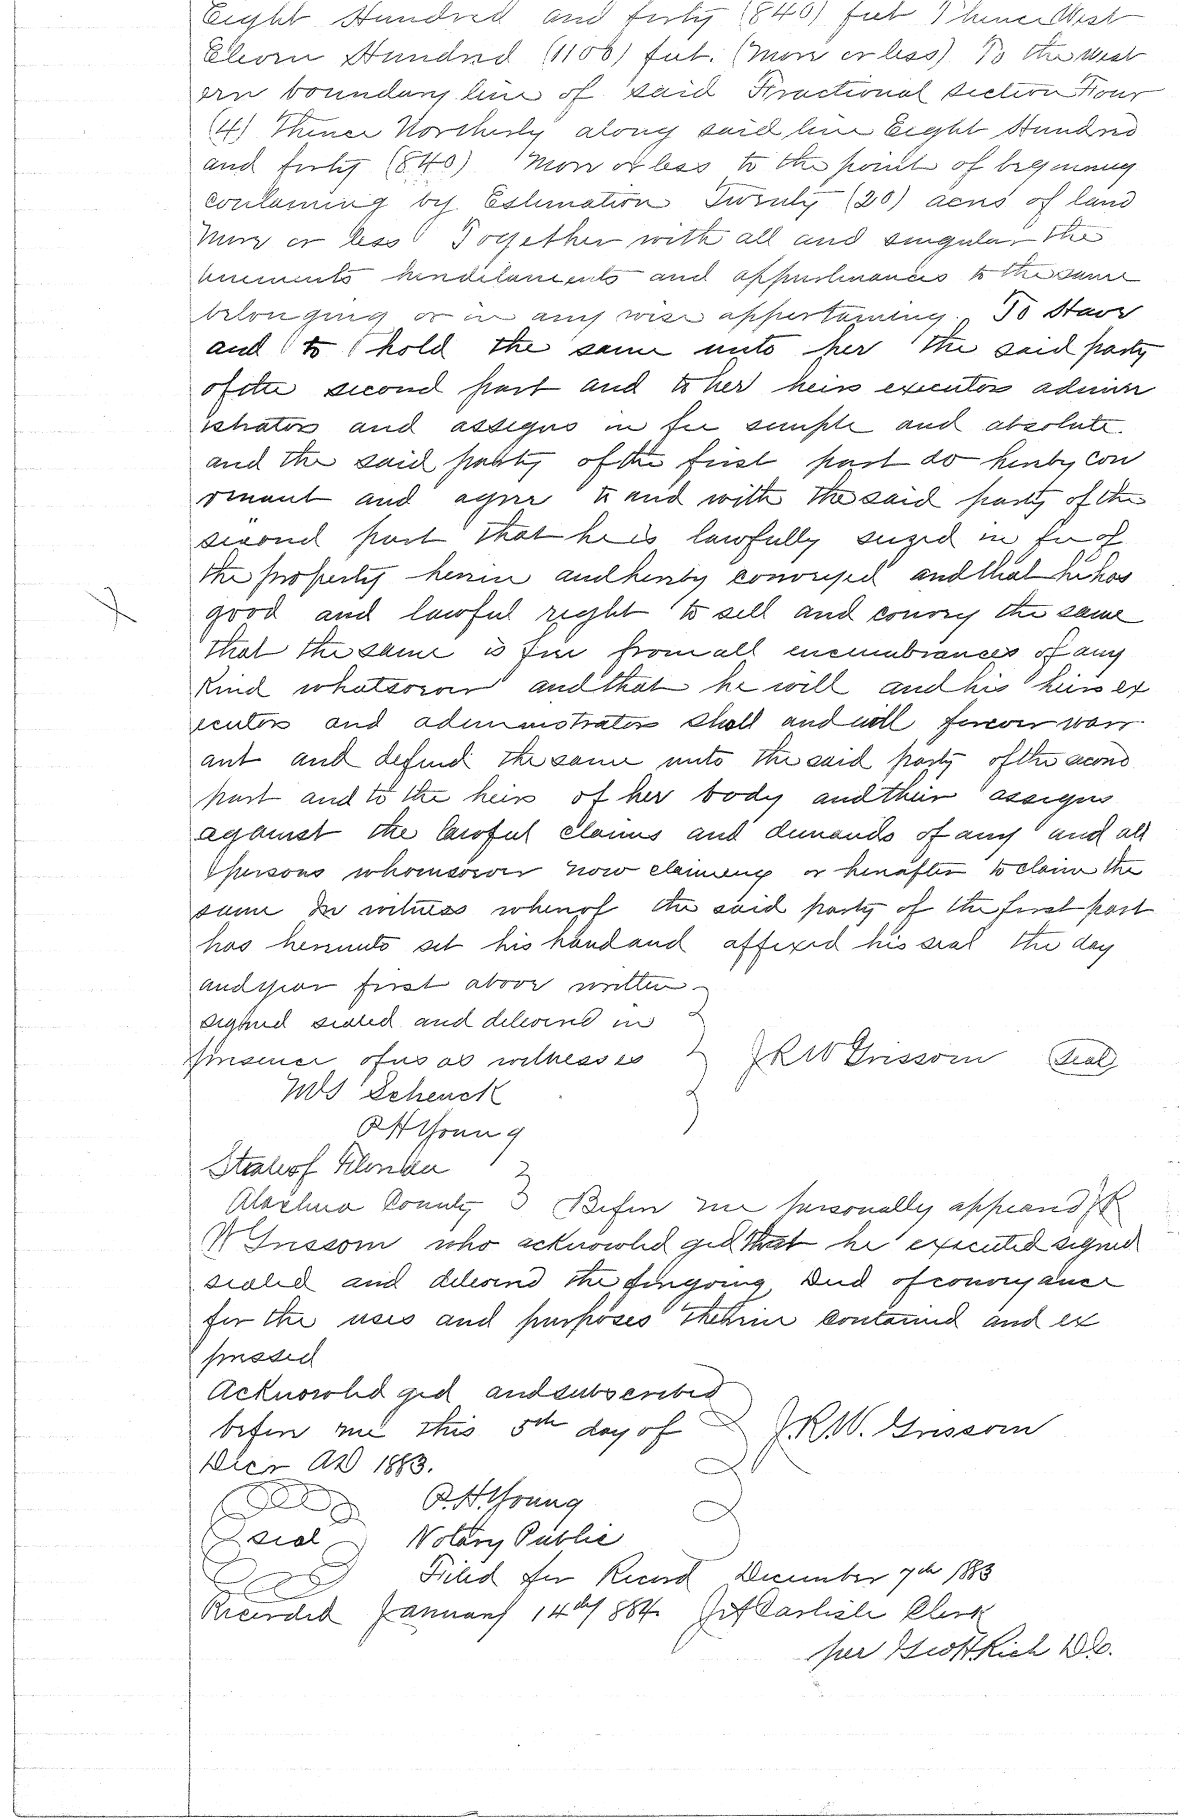 Eight Hundred and forty (840) feet Thence West
Eleven Hundred (1100) feet. (more or less) To the West
ern boundary line of said Fractional section Four
(4) Thence Northerly along said line Eight Hundred
and forty (840) More or less to the point of beginning
containing by Estimation Twenty (20) acres of land
More or less Together with all and singular the
tenements hereditaments and appurtenances to the same
belonging or in any wise appertaining. To Have
and to hold the same unto her the said party
of the second part and to her heirs executors admin
istrators and assigns in fee simple and absolute.
and the said party of the first part do hereby con
venant and agree to and with the said party of the
second part that he is lawfully seized in fee of
the property herein and hereby conveyed and that he has
good and lawful right to sell and convey the same
that the same is free from all encumbrances of any
kind whatsoever and that he will and his heirs ex
ecutors and administrators shall and will forever warr
ant and defend the same unto the said party of the second
part and to the heirs of her body and their assigns
against the lawful claims and demands of any and all
persons whomsoever now claiming or hereafter to claim the
same In witness whereof the said party of the first part
has hereunto set his hand and affixed his seal the day
and year first above written
signed sealed and delivered in
presence of us as witnesses J R W Grissom Seal
W S Schenck
P H Young
State of Florida
Alachua County Before me personally appeared J R
W Grissom who acknowledged that he executed signed
sealed and delivered the foregoing Deed of conveyance
for the uses and purposes therein contained and ex
pressed
Acknowledged and subscribed
before me this 5th day of J.R.W. Grissom
Decr AD 1883.
P.H. Young
seal Notary Public
Filed for Record December 7th 1883
Recorded January 14th 1884 J A Carlisle Clerk
per Geo H Rich D.C.